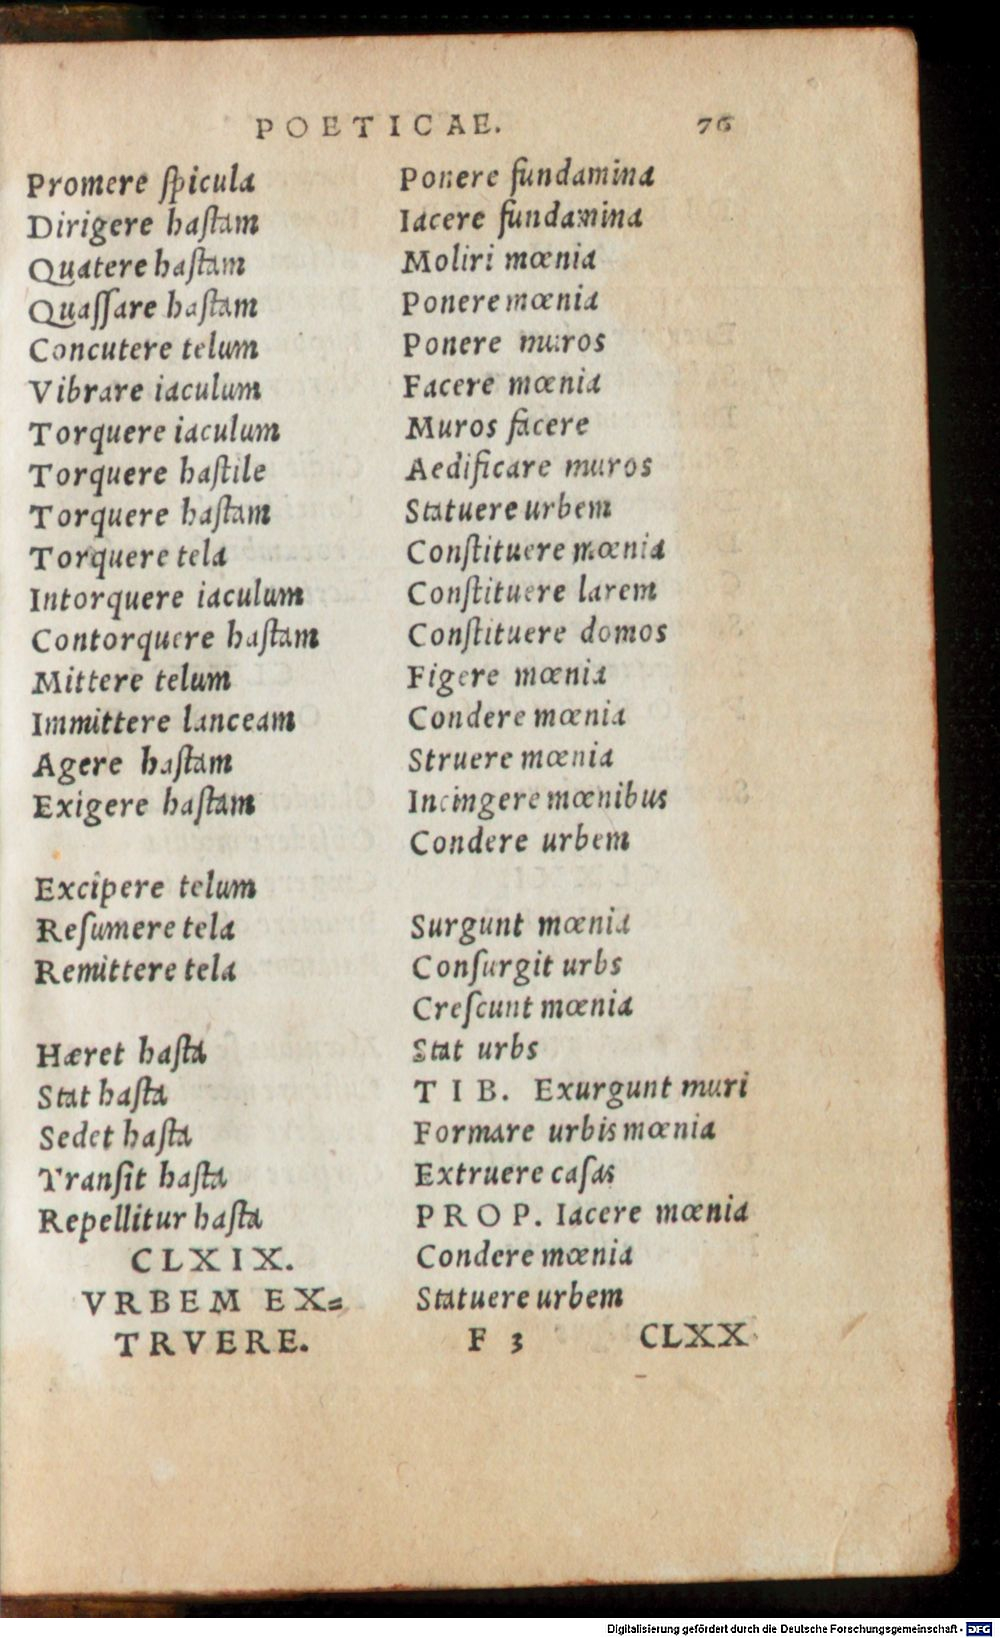 POETICAE.
76
Promere ſpicula
Dirigere haſtam
Quatere haſtam
Quaſſare haſtam
Concutere telum
Vibrare iaculum
Torquere iaculum
Torquere haſtile
Torquere haſtam
Torquere tela
Intorquere iaculum
Contorquere haſtam
Mittere telum
Immittere lanceam
Agere haſtam
Exigere haſtam
Excipere telum
Reſumere tela
Remittere tela
Hæret haſta
Stat haſta
Sedet haſta
Tranſit haſta
Repellitur haſta
CLXIX.
VRBEM EX=
TRVERE.
Ponere fundamina
Iacere fundamina
Moliri mœnia
Ponere mœnia
Ponere muros
Facere mœnia
Muros facere
Aedificare muros
Statuere urbem
Conſtituere mœnia
Conſtituere larem
Conſtituere domos
Figere mœnia
Condere mœnia
Struere mœnia
Incingere mœnibus
Condere urbem
Surgunt mœnia
Conſurgit urbs
Creſcunt mœnia
Stat urbs
TIB. Exurgunt muri
Formare urbis mœnia
Extruere caſas
PROP. Iacere mœnia
Condere mœnia
Statuere urbem
F 3
CLXX
Digitalisierung gefördert durch die Deutsche Forschungsgemeinschaft - DFG